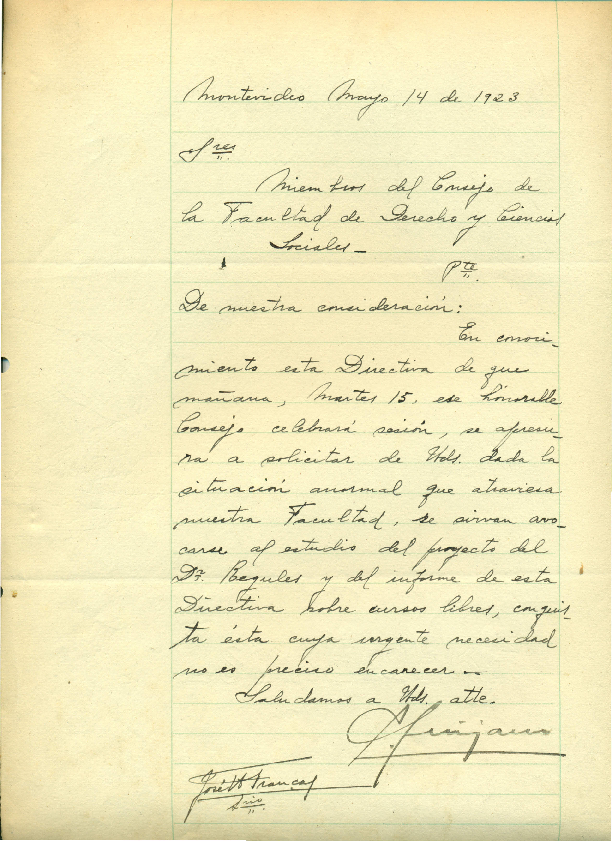 Montevideo Mayo 14 de 1923
Sres.
Miembros del Consejo de
la Facultad de Derecho y Ciencias
Sociales -
Pte.
De nuestra consideración:
En conoci-
miento esta Directiva de que
mañana, Martes 15, ese honorable
Consejo celebrará sesión, se apresu-
ra a solicitar de Uds. dada la
situación anormal que atraviesa
nuestra Facultad, se sirvan avo-
carse al estudio del proyecto del
Dr. Regules y del informe de esta
Directiva sobre cursos libres, conquis-
ta ésta cuya urgente necesidad
no es preciso encarecer. -
Saludamos a Uds. atte.
José H. Franca
Srio